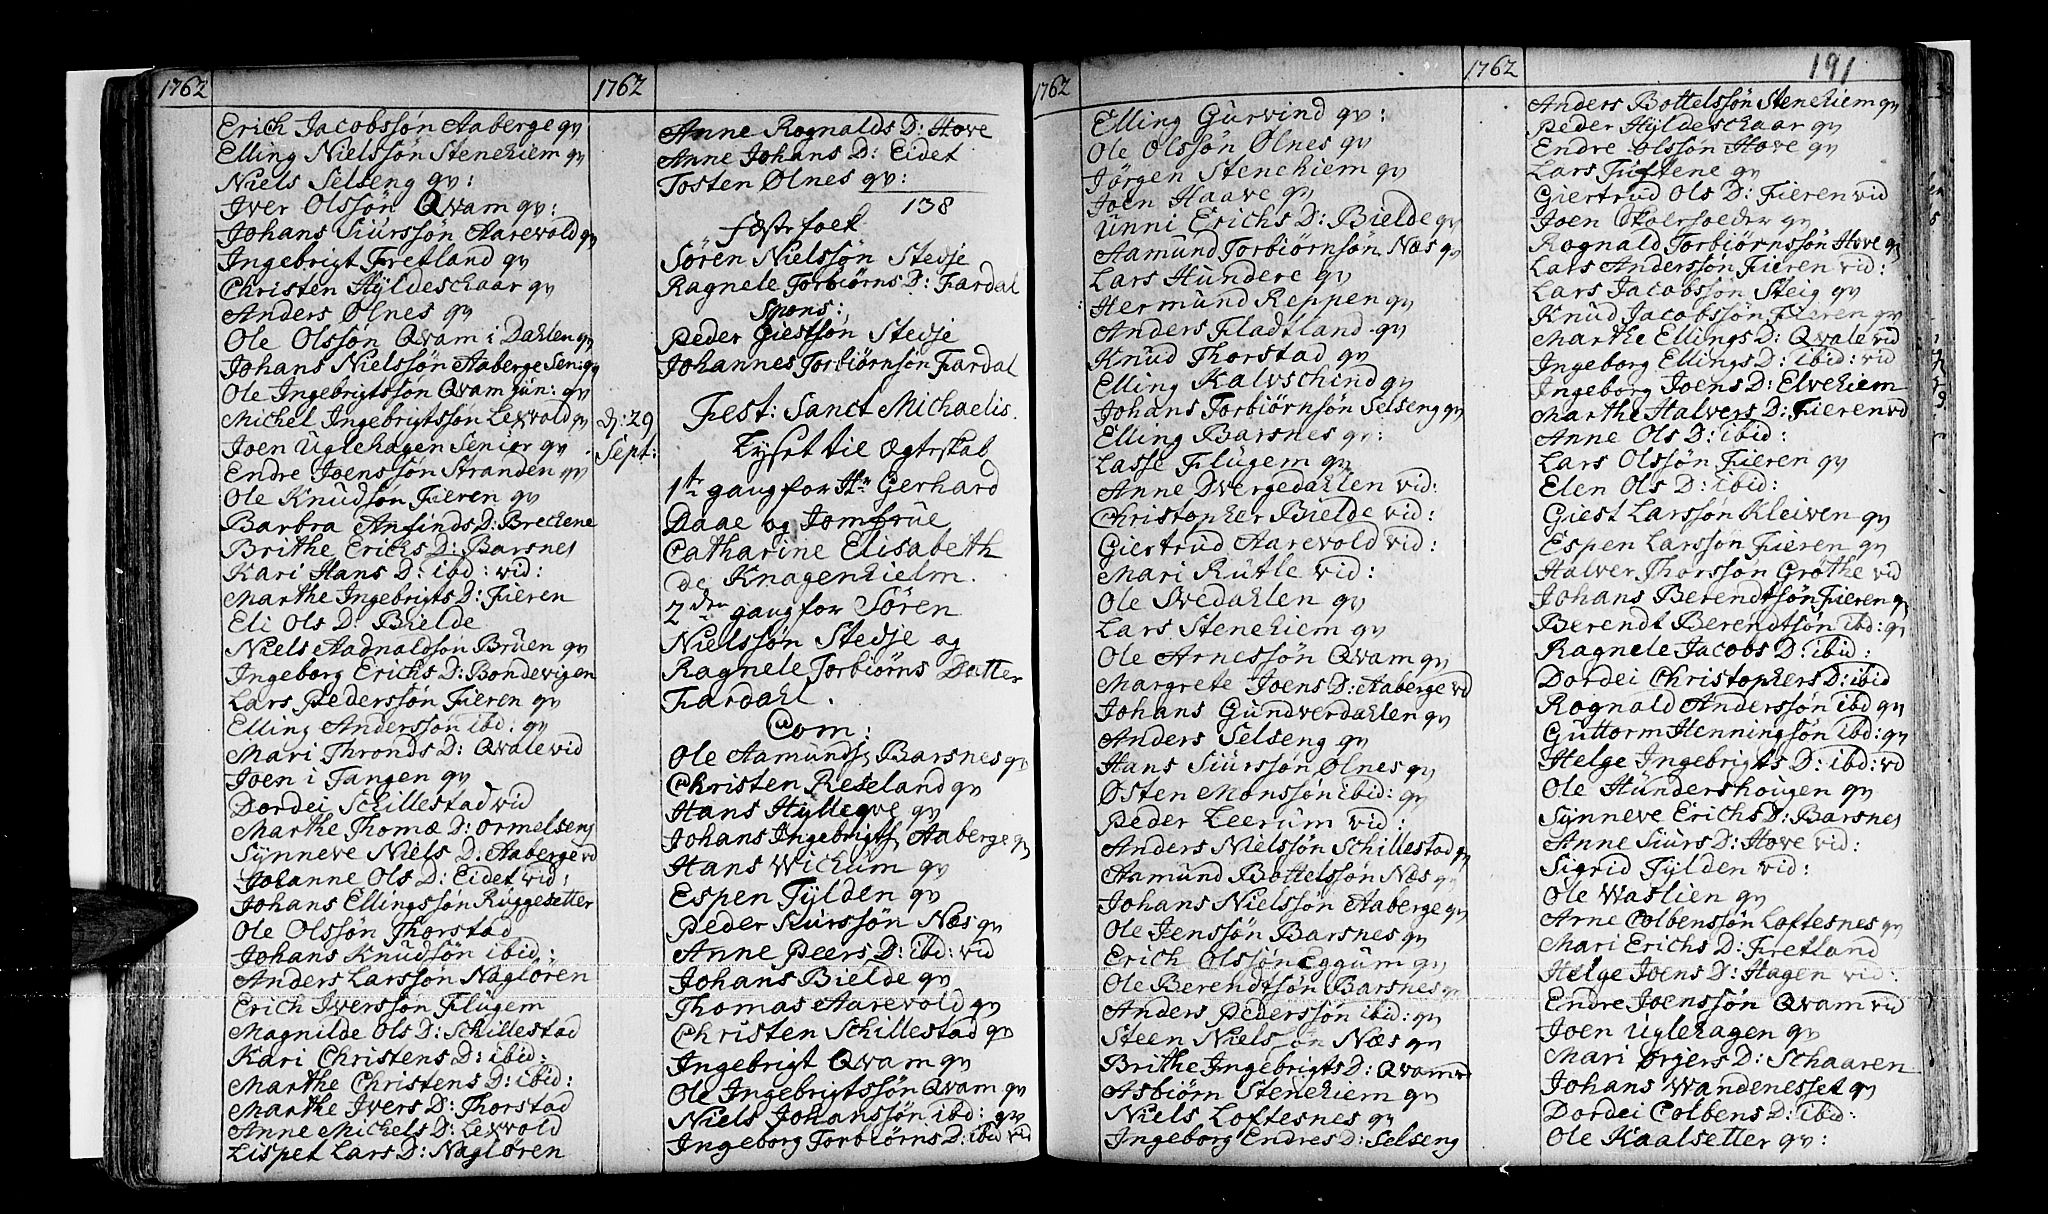 1762
Erich Jacobssøn Aaberge qv
Elling Nielssøn Stenehiem qv
Niels Selseng qv:
Iver Olssøn Qvam qv:
Johans Siurssøn Aarevold qv
Ingebrigt Fretland qv
Christen Hyldeschaar qv
Anders Ølnes qv
Ole Olssøn Qvam i Dahlen qv
Johans Nielssøn Aaberge Seni qv
Ole Ingebrigtssøn Qvam jun: qv
Michel Ingebrigtssøn Lexvold qv
Joen Uglehagen Senior qv
Endre Joenssøn Stranden qv
Ole Knudsøn Fieren qv
Barbra Anfinds D: Brechene
Brithe Erichs D: Barsnes
Kari Hans D: ibd: vid:
Marthe Ingebrigts D: Fieren
Eli Ols D: Bielde
Niels Aadnaldsøn Bruen qv
Ingeborg Erichs D: Bondevigen
Lars Pederssøn Fieren qv
Elling Anderssøn ibd: qv
Mari Thronds D: Qvale vid
Joen i Tangen qv
Dordei Schillestad vid
Marthe Thomæ D: Ormelseng
Synneve Niels D: Aaberge vd
Johanne Ols D: Eidet vid:
Johans Ellingssøn Ruggesetter
Ole Olssøn Thorstad
Johans Knudsøn ibid:
Anders Larssøn Nagløren
Erich Iverssøn Flugem
Magnilde Ols D: Schillestad
Kari Christens D: ibid:
Marthe Christens D: ibid:
Marthe Ivers D: Thorstad
Anne Michels D: Lexvold
Lispet Lars D: Nagløren
1762
D: 29
Sept:
Anne Rognalds D: Hove
Anne Johans D: Eidet
Tosten Ølnes qv:
138
Fæstefolk
Søren Nielssøn Stedje
Ragnele Torbiørns D: Fardal
Spons:
Peder Giestsøn Stedje
Johannes Torbiørnsøn Fardal
Fest: Sanct Michaelis.
Lyset til Ægteskab
1te gang for Hr Gerhard
Daae og Jomfrue
Catharine Elisabeth
de Knagenhielm.
2den gang for Søren
Nielssøn Stedje og
Ragnele Torbiørns Datter
Fardahl.
Com:
Ole Aamunds: Barsnes qv
Christen Reseland qv
Hans Hylleqve qv
Johans Ingebrigts: Aaberge qv
Hans Wichum qv
Espen Fylden qv
Peder Siurssøn Næs qv
Anne Peers D: ibd: vid
Johans Bielde qv
Thomas Aarevold qv
Christen Schillestad qv
Ingebrigt Qvam qv
Ole Ingebrigtssøn Qvam qv
Niels Johanssøn ibd: qv
Ingeborg Torbiørns D: ibid vid
1762
Elling Gurvind qv:
Ole Olssøn Ølnes qv
Jørgen Stenehiem qv
Joen Haave qv
Unni Erichs D: Bielde qv
Aamund Torbiørnsøn Næs qv
Lars Hundere qv
Hermund Reppen qv
Anders Fladtland qv
Knud Thorstad qv
Elling Kalvschind qv
Johans Torbiørnsøn Selseng qv
Elling Barsnes qv:
Lasse Flugem qv
Anne Dvergedahlen vid:
Christopher Bielde vid:
Giertrud Aarevold vid:
Mari Rutle vid:
Ole Svedahlen qv
Lars Stenehiem qv
Ole Arnessøn Qvam qv
Margrete Joens D: Aaberge vd
Johans Gundverdahlen qv
Anders Selseng qv
Hans Siurssøn Ølnes qv
Østen Monssøn ibid: qv
Peder Leerum vid:
Anders Nielssøn Schillestad qv
Aamund Bottelssøn Næs qv
Johans Nielssøn Aaberge qv
Ole Jenssøn Barsnes qv
Erich Olssøn Eggum qv
Ole Berendtsøn Barsnes qv
Anders Pederssøn ibid: qv
Steen Nielssøn Næs qv
Brithe Ingebrigts D: Qvam vd
Asbiørn Stenehiem qv
Niels Loftesnes qv
Ingeborg Endres D: Selseng
1762
191
Anders Bottelssøn Stenehiem qv
Peder Hyldeschaar qv
Endre Olssøn Hove qv
Lars Tuftene qv
Giertrud Ols D: Fieren vid
Joen Skolesoeder qv
Rognald Torbiørnssøn Hove qv
Lars Anderssøn Fieren vid:
Lars Jacobssøn Steig qv
Knud Jacobssøn Fieren qv
Marthe Ellings D: Qvale vid
Ingeborg Ellings D: ibid: vid
Ingeborg Joens D: Elvehiem
Marthe Halvers D: Fieren vd
Anne Ols D: ibid:
Lars Olssøn Fieren qv
Elen Ols D: ibid:
Giest Larssøn Kleiven qv
Espen Larsson Fieren qv
Halver Thorssøn Grøthe vid
Johans Berendtsøn Fieren qv
Berendt Berendtsøn ibd: qv
Ragnele Jacobs D: ibid:
Dordei Christophers D: ibid
Rognald Anderssøn ibd qv
Guttorm Henningsøn ibd: qv
Helge Ingebrigts D: ibd: vd
Ole Hundershoigen qv
Synneve Erichs D: Barsnes
Anne Siurs D: Hove vid:
Sigrid Fylden vid:
Ole Waslien qv
Arne Colbenssøn Loftesnes qv
Mari Erichs D: Fretland
Helge Joens D: Hagen vid:
Endre Joenssøn Qvam vid
Joen Uglehagen qv
Mari Ørjers D: Schaaren
Johans Wandenesset qv
Dordei Colbens D: ibid:
Ole Kaalsetter qv: